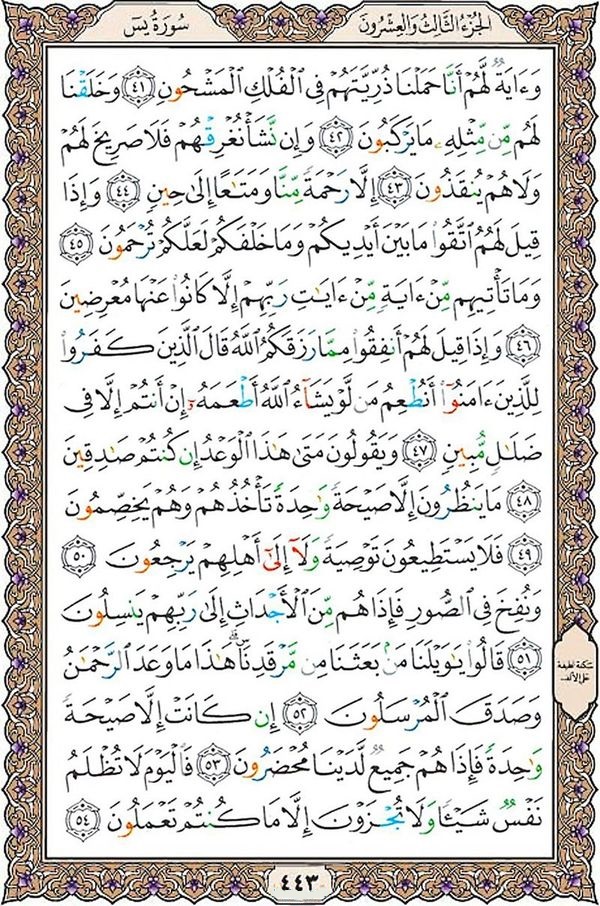 الجُزءُ الثَّالِثُ وَالعِشْرُونَ
سُورَةُ يسٓ
وَءَايَةٌ لَّهُمْ أَنَّا حَمَلْنَا ذُرِّيَّتَهُمْ فِى الْفُلْكِ الْمَشْحُونِ ٤١ وَخَلَقْنَا
لَهُم مِّن مِّثْلِهِۦ مَا يَرْكَبُونَ ٤٢ وَإِن نَّشَأْ نُغْرِقْهُمْ فَلَا صَرِيخَ لَهُمْ
وَلَا هُمْ يُنقَذُونَ ٤٣ إِلَّا رَحْمَةً مِّنَّا وَمَتَـٰعًا إِلَىٰ حِينٍ ٤٤ وَإِذَا
قِيلَ لَهُمُ اتَّقُوا مَا بَيْنَ أَيْدِيكُمْ وَمَا خَلْفَكُمْ لَعَلَّكُمْ تُرْحَمُونَ ٤٥
وَمَا تَأْتِيهِم مِّنْ ءَايَةٍ مِّنْ ءَايَـٰتِ رَبِّهِمْ إِلَّا كَانُوا عَنْهَا مُعْرِضِينَ
٤٦ وَإِذَا قِيلَ لَهُمْ أَنفِقُوا مِمَّا رَزَقَكُمُ اللَّهُ قَالَ الَّذِينَ كَفَرُوا
لِلَّذِينَ ءَامَنُوٓا أَنُطْعِمُ مَن لَّوْ يَشَآءُ اللَّهُ أَطْعَمَهُۥٓ إِنْ أَنتُمْ إِلَّا فِى
ضَلَـٰلٍ مُّبِينٍ ٤٧ وَيَقُولُونَ مَتَىٰ هَـٰذَا الْوَعْدُ إِن كُنتُمْ صَـٰدِقِينَ
٤٨ مَا يَنظُرُونَ إِلَّا صَيْحَةً وَٰحِدَةً تَأْخُذُهُمْ وَهُمْ يَخِصِّمُونَ
٤٩ فَلَا يَسْتَطِيعُونَ تَوْصِيَةً وَلَآ إِلَىٰٓ أَهْلِهِمْ يَرْجِعُونَ ٥٠
وَنُفِخَ فِى الصُّورِ فَإِذَا هُم مِّنَ الْأَجْدَاثِ إِلَىٰ رَبِّهِمْ يَنسِلُونَ
٥١ قَالُوا يَـٰوَيْلَنَا مَنۢ بَعَثَنَا مِن مَّرْقَدِنَاۜ ۗ هَـٰذَا مَا وَعَدَ الرَّحْمَـٰنُ
وَصَدَقَ الْمُرْسَلُونَ ٥٢ إِن كَانَتْ إِلَّا صَيْحَةً
وَٰحِدَةً فَإِذَا هُمْ جَمِيعٌ لَّدَيْنَا مُحْضَرُونَ ٥٣ فَالْيَوْمَ لَا تُظْلَمُ
نَفْسٌ شَيْـًٔا وَلَا تُجْزَوْنَ إِلَّا مَا كُنتُمْ تَعْمَلُونَ ٥٤
سكتة لطيفة
على الألف
٤٤٣